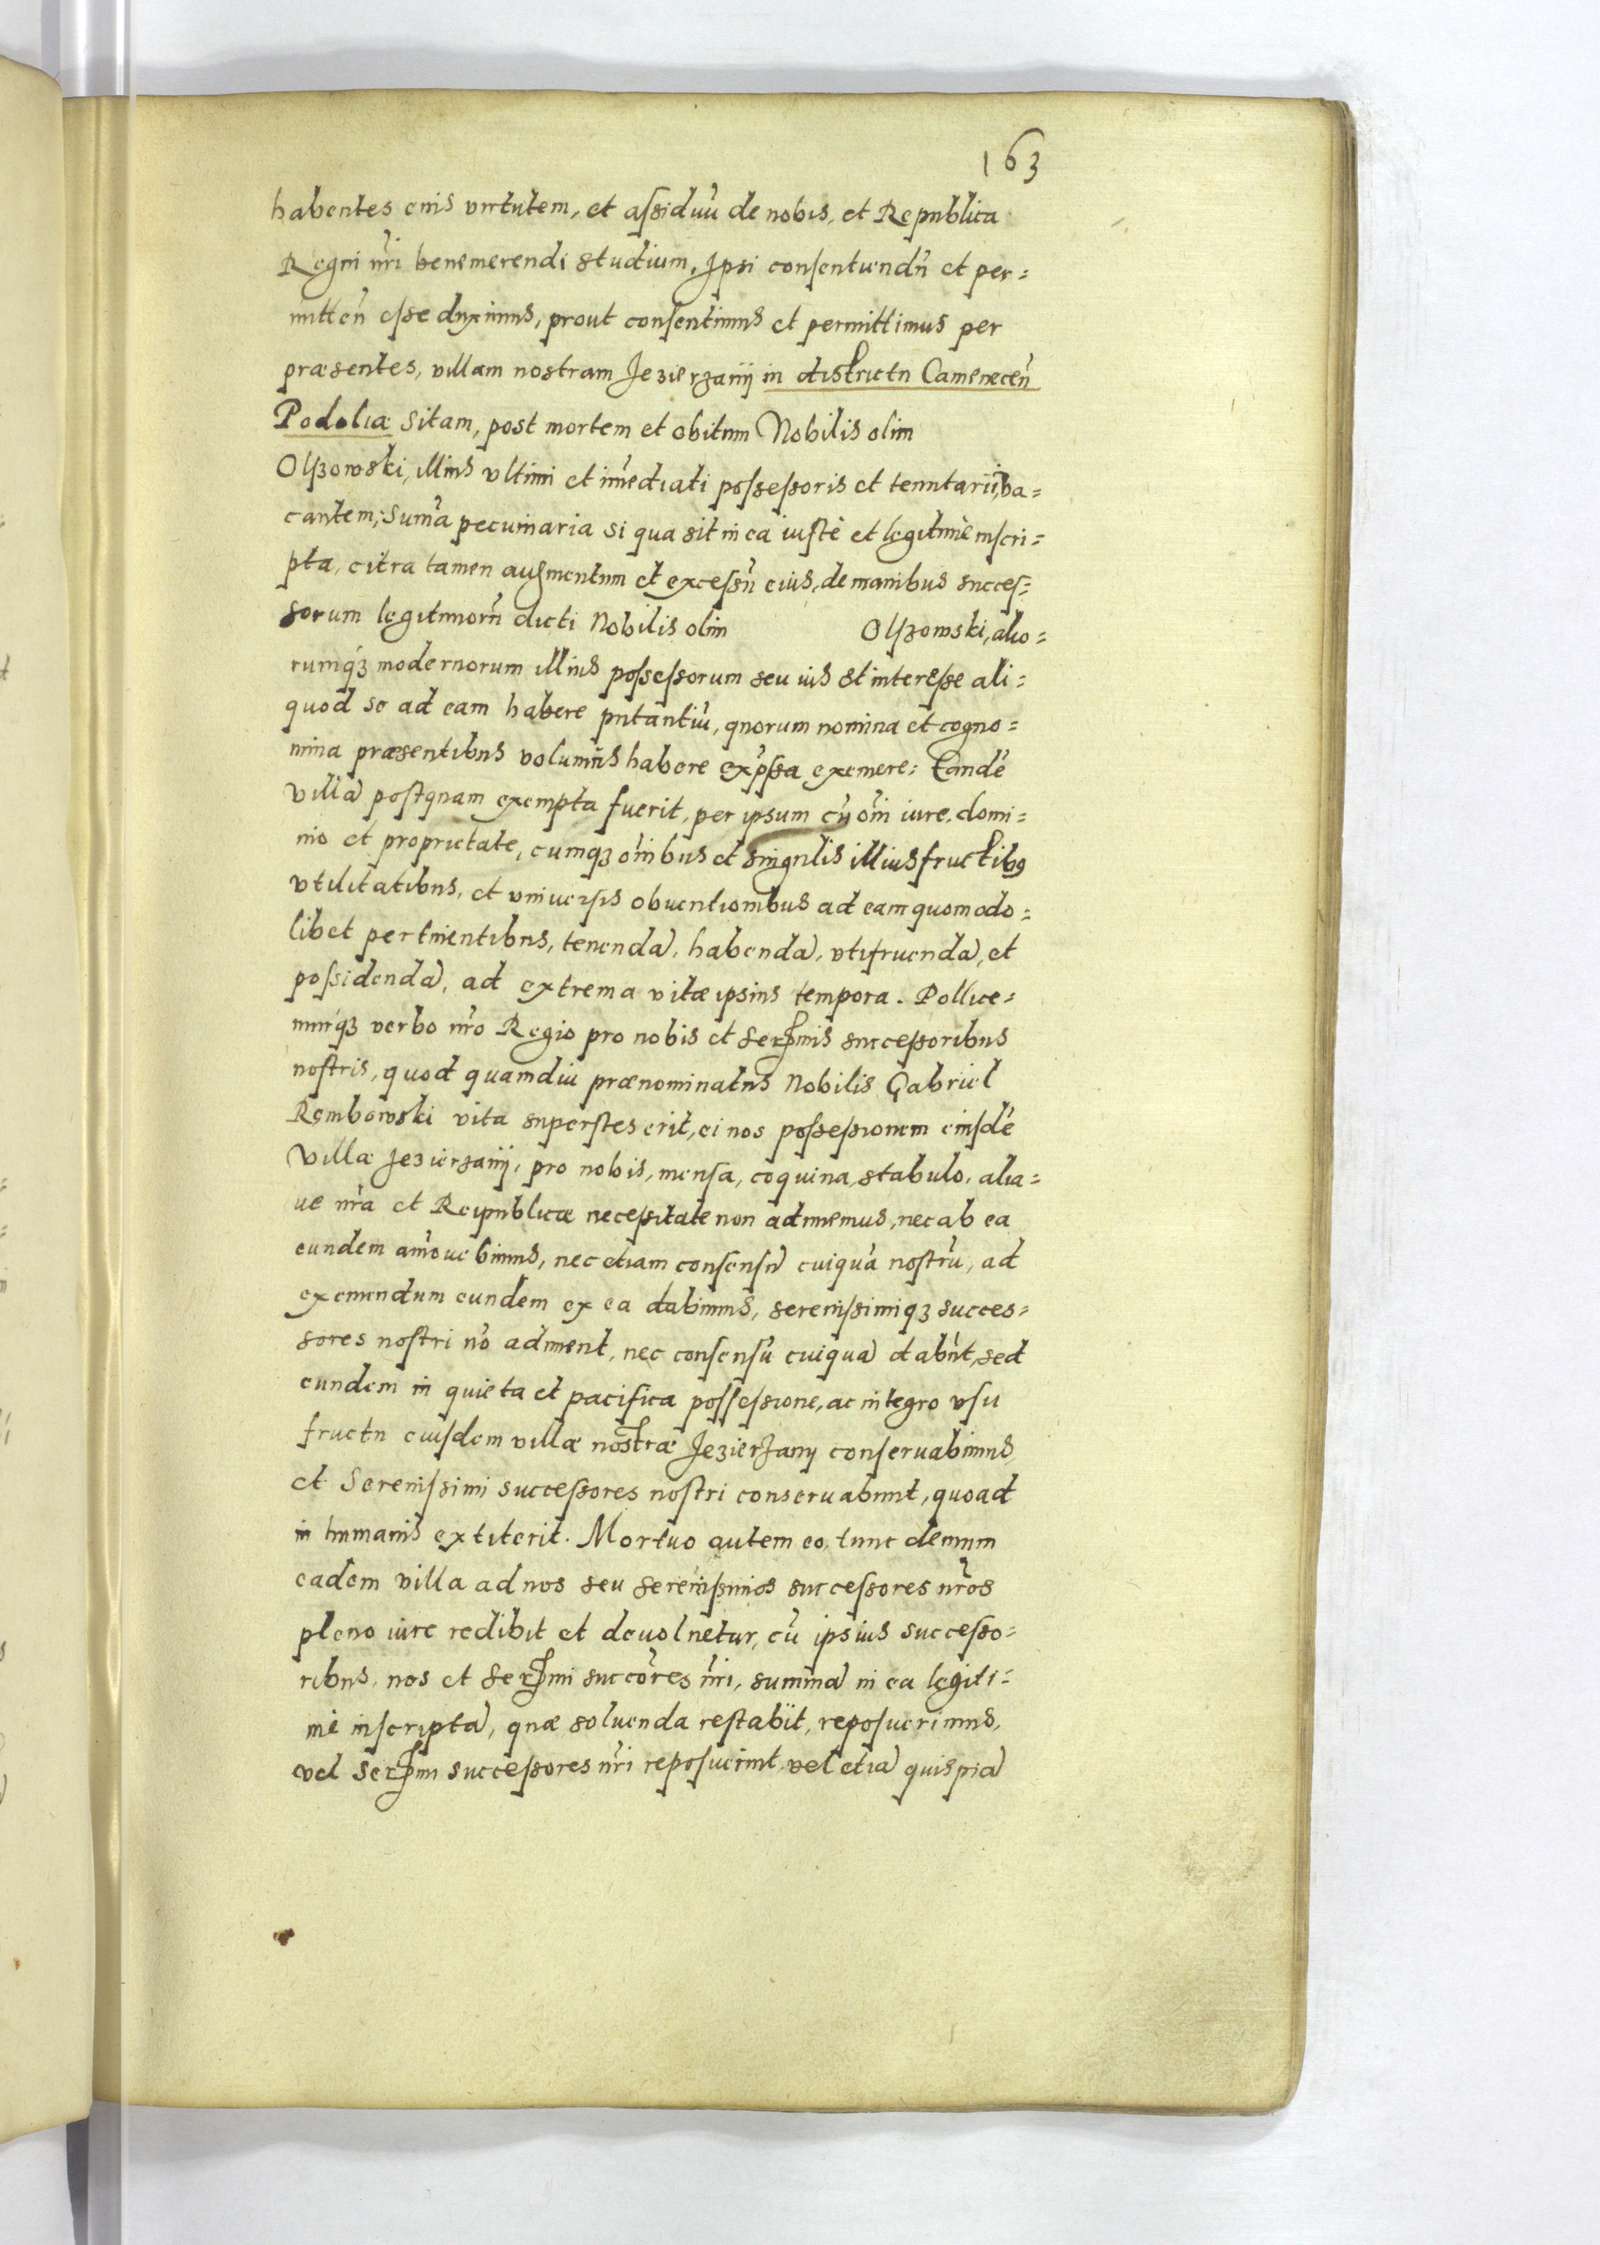 163
habentes eius virtutem, et assiduũ de nobis, et Republica
Regni nr̃i benemerendi studium, Ipsi consentiendũ et per=
mitten̄ esse duximus, prout consentimus et permittimus per
præsentes, villam nostram Jezierzanij in districtu Camenecen̄
Podoliæ sitam, post mortem et obitum Nobilis olim
Olszowski, illius vltimi et im̃ediati possessoris et tenutarij, va=
cantem, Sum̃a pecuniaria si qua sit in ea iustè et legitimè inscri=
pta, citra tamen augmentum et excessũ eius, de manibus succes=
sorum legitimorũ dicti Nobilis olim Olszowski, alio=
rumqꝫ modernorum illius possessorum seu ius et interesse ali=
quod se ad eam habere putantiũ, quorum nomina et cogno=
mina præsentibus volumus habere exp̃ssa exemere: Eandẽ
villã postquam exempta fuerit, per ipsum cũ om̃i iure, domi=
nio et proprietate, cumqꝫ om̃ibus et singulis illius fructibꝰ
vtilitatibus, et vniuersis obuentionibus ad eam quomodo=
libet pertinentibus, tenendã, habendã, vtifruendã, et
possidendã, ad extrema vitæ ipsius tempora. Pollice=
murqꝫ verbo nr̃o Regio pro nobis et Serꝫmis successoribus
nostris, quod quamdiu prænominatus Nobilis Gabriel
Rembowski vita superstes erit, ei nos possessionem eiusdẽ
Villæ Jezierzanij, pro nobis, mensa, coquina, stabulo, alia=
ue nr̃a et Reipublicæ necessitate non adimemus, nec ab ea
eundem amouebimus, nec etiam consensũ cuiquã nostrũ, ad
exemendum eundem ex ea dabimus, serenissimiqꝫ succes=
sores nostri nõ adiment, nec consensũ cuiquã dabũt, sed
eundem in quieta et pacifica possessione, ac integro vsu
fructu eiusdem villæ nostræ Jezierzany conseruabimus
et Serenissimi successores nostri conseruabunt, quoad
in humanis extiterit. Mortuo autem eo, tunc demum
eadem villa ad nos seu serenissimos successores nr̃os
pleno iure redibit et deuoluetur, cũ ipsius successo=
ribus, nos et Serꝫmi succõres nr̃i, summã in ea legiti=
mè inscriptã, quæ soluenda restabit, reposuerimus,
vel Serꝫmi successores nr̃i reposuerint vel etiã quispiã